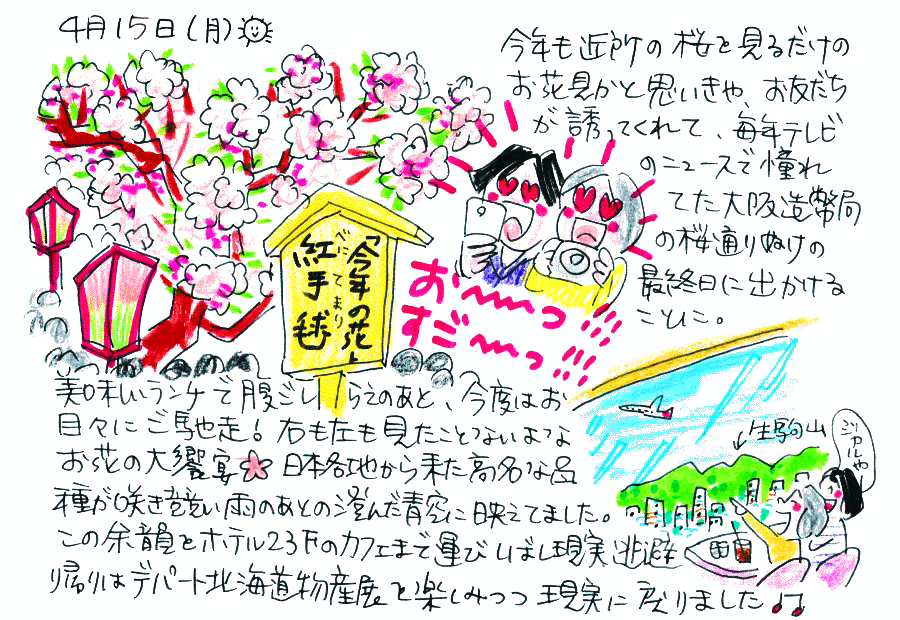 4月15日(月)
今年も近所の桜を見るだけの
お花見かと思いきや、お友だち
が誘ってくれて、毎年テレビ
のニュースで憧れ
てた大阪造幣局
の桜通りぬけの
最終日に出かける
ことに。
「今年の花」
紅手毬
べにてまり
お〜〜っ!!!
すご〜〜っ!!!
美味しいランチで腹ごしらえのあと、今度はお
目々にご馳走!右も左も見たことないような
お花の大饗宴 日本各地から来た高名な品
種が咲き競い雨のあとの澄んだ青空に映えてました。
この余韻をホテル23Fのカフェまで運びしばし現実逃避
帰りはデパート北海道物産展を楽しみつつ現実に戻りました♫
生駒山